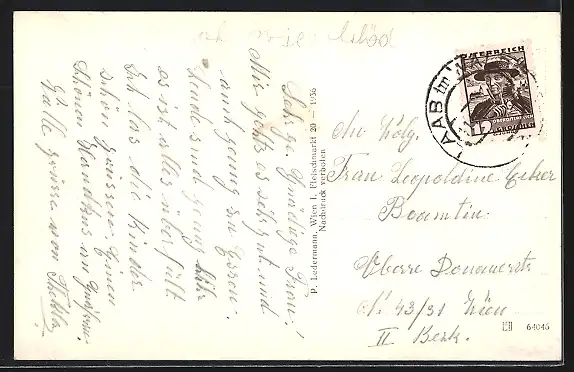 Sehr ge. Gnädige Frau!
Mir gehts es sehr gut und
auch genug zu Essen.
Hunde sind genug hier
es ist alles überfült.
Ich las die Kinder
schön grüssen Einen
schönen Handkus an
Gütte grüsse von
P. Ledermann, Wien I, Fleischmarkt 20 — 1936
Nachdruck verboten
ÖSTERREICH
12
LAAB im
An Wolg.
Frau Leopoldine
Beamtin
Obere Donaustr
No 43/31 Wien
II Bezk.
64046